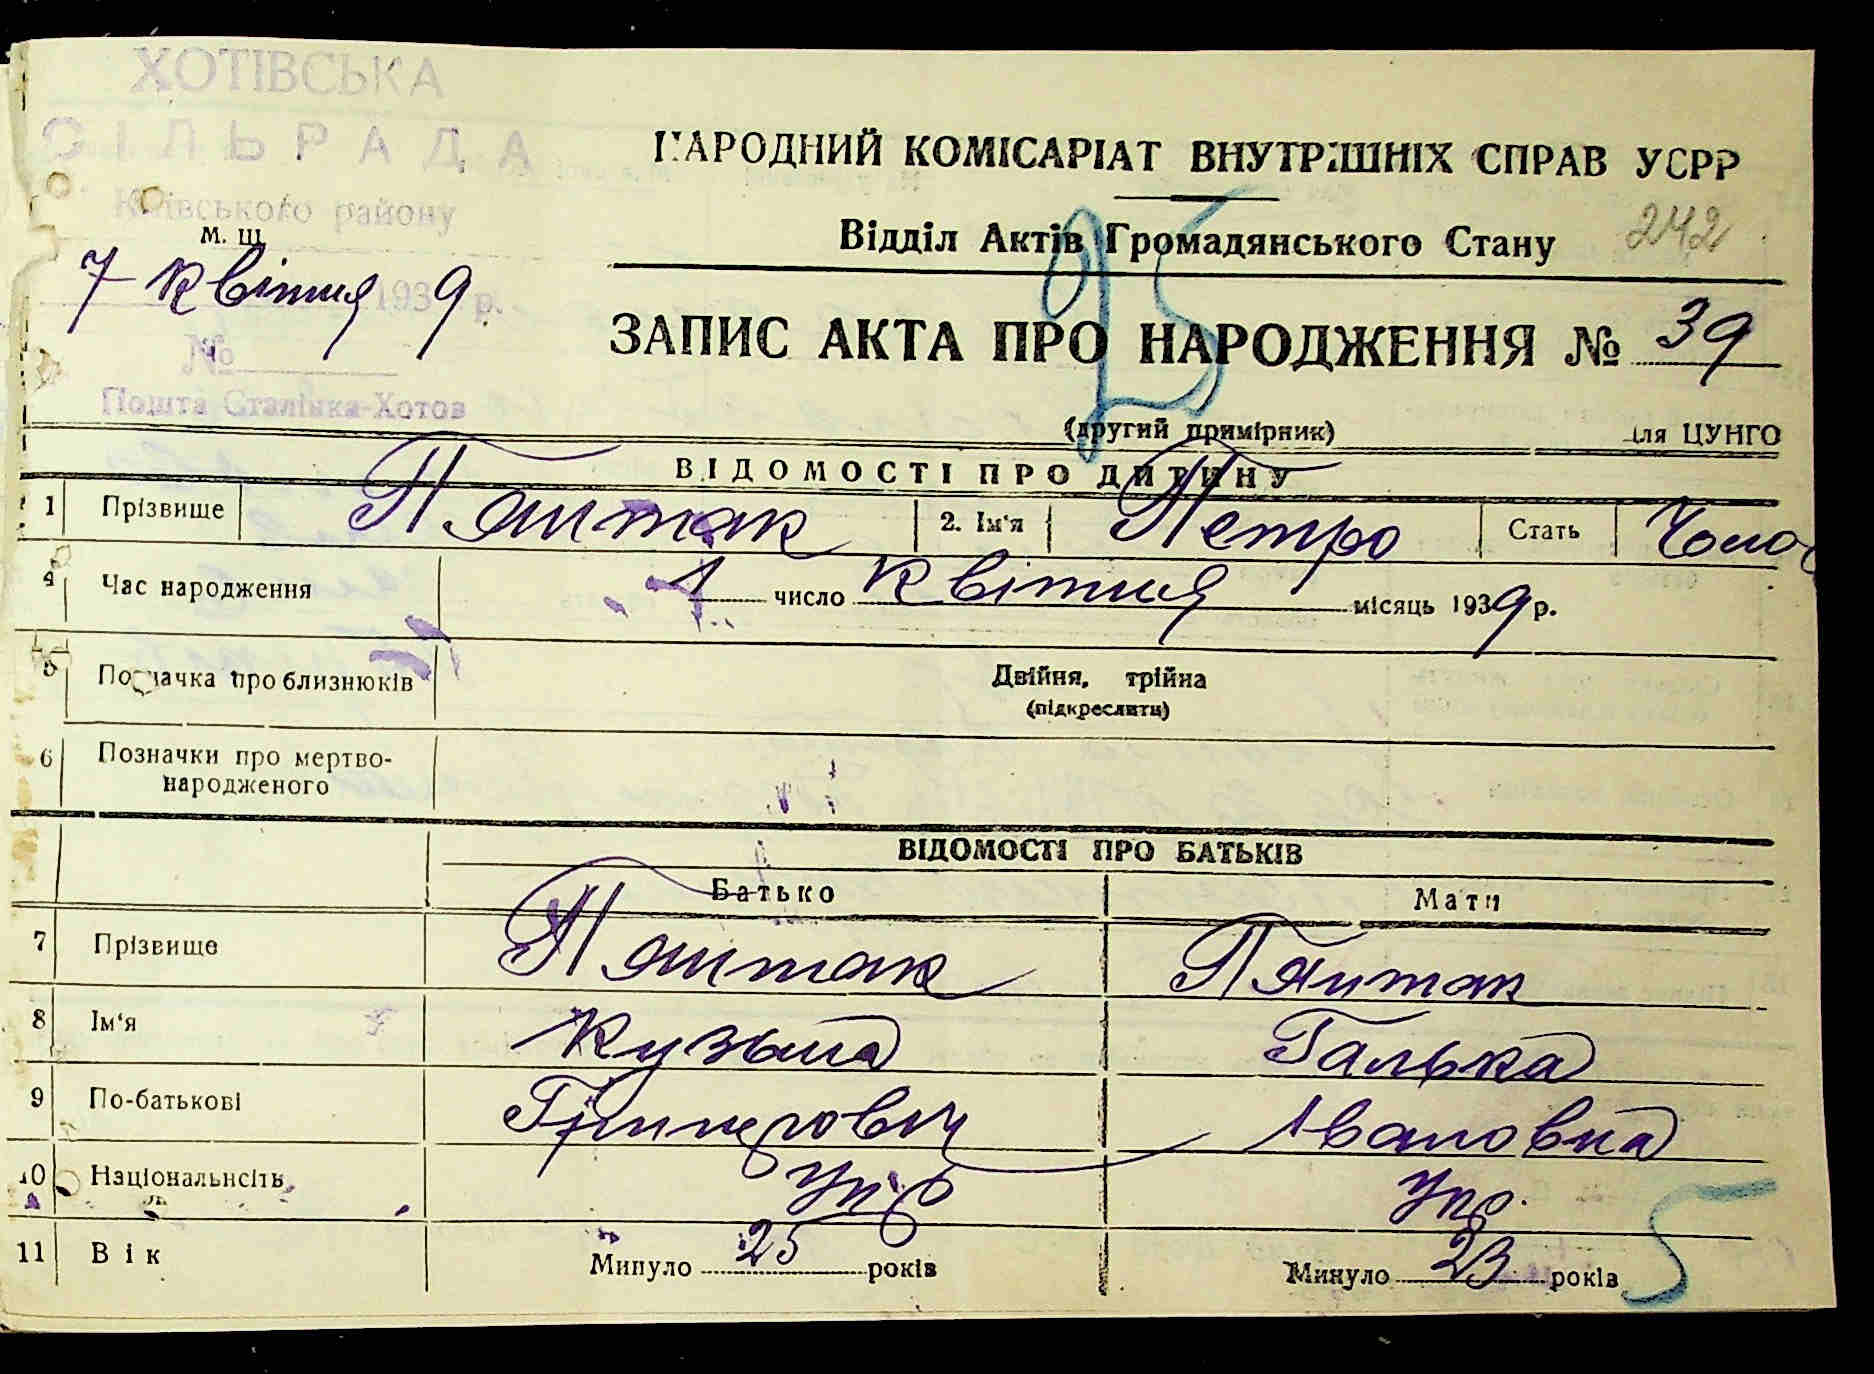 ХОТІВСЬКА
СІЛЬРАДА
Київського району
М. Ш.
7 Квітня 1939 р.
№
Пошта Сталінка-Хотов
НАРОДНИЙ КОМІСАРІАТ ВНУТРІШНІХ СПРАВ УСРР
Відділ Актів Громадянського Стану 242
25
ЗАПИС АКТА ПРО НАРОДЖЕННЯ № 39
(другий примірник) для ЦУНГО
ВІДОМОСТІ ПРО ДИТИНУ
1 Прізвище Пяитак 2. Ім'я Петро Стать Чоло
4 Час народження 1 число Квітня місяць 1939 р.
5 Позначка про близнюків Двійня, трійна
(підкреслити)
6 Позначки про мертво-
народженого
ВІДОМОСТІ ПРО БАТЬКІВ
Батько Мати
7 Прізвище Пяитак Пяитак
8 Ім'я Кузьма Галька
9 По-батькові Івановна
10 Національність Укр Укр.
11 Вік Минуло 25 років Минуло 23 років 5